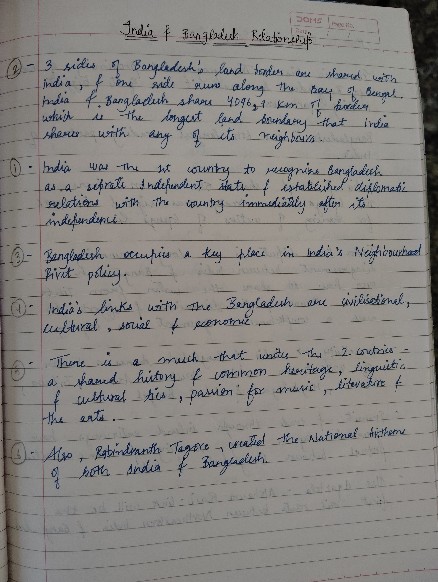 India & Bangladesh Relationship
② - 3 sides of Bangladesh's land border are shared with
India, & one side runs along the Bay of Bengal
India & Bangladesh share 4096,7 km of border,
which is the longest land boundary that india
shares with any of its neighbours.
① - India was the 1st country to recognize Bangladesh
as a seprate Independent state & established diplomatic
relations with the country immediately after its
independence.
③ - Bangladesh occupies a key place in India's Neighbourhood
First policy.
④ - India's links with the Bangladesh are civilisational,
cultural, social & economic.
- There is a much that unite the 2 contries -
a shared history & common heritage, linguistic
& cultural ties, passion for music, literature &
the arts.
- Also, Rabindranth Tagore, created the National Anthem
of both India & Bangladesh